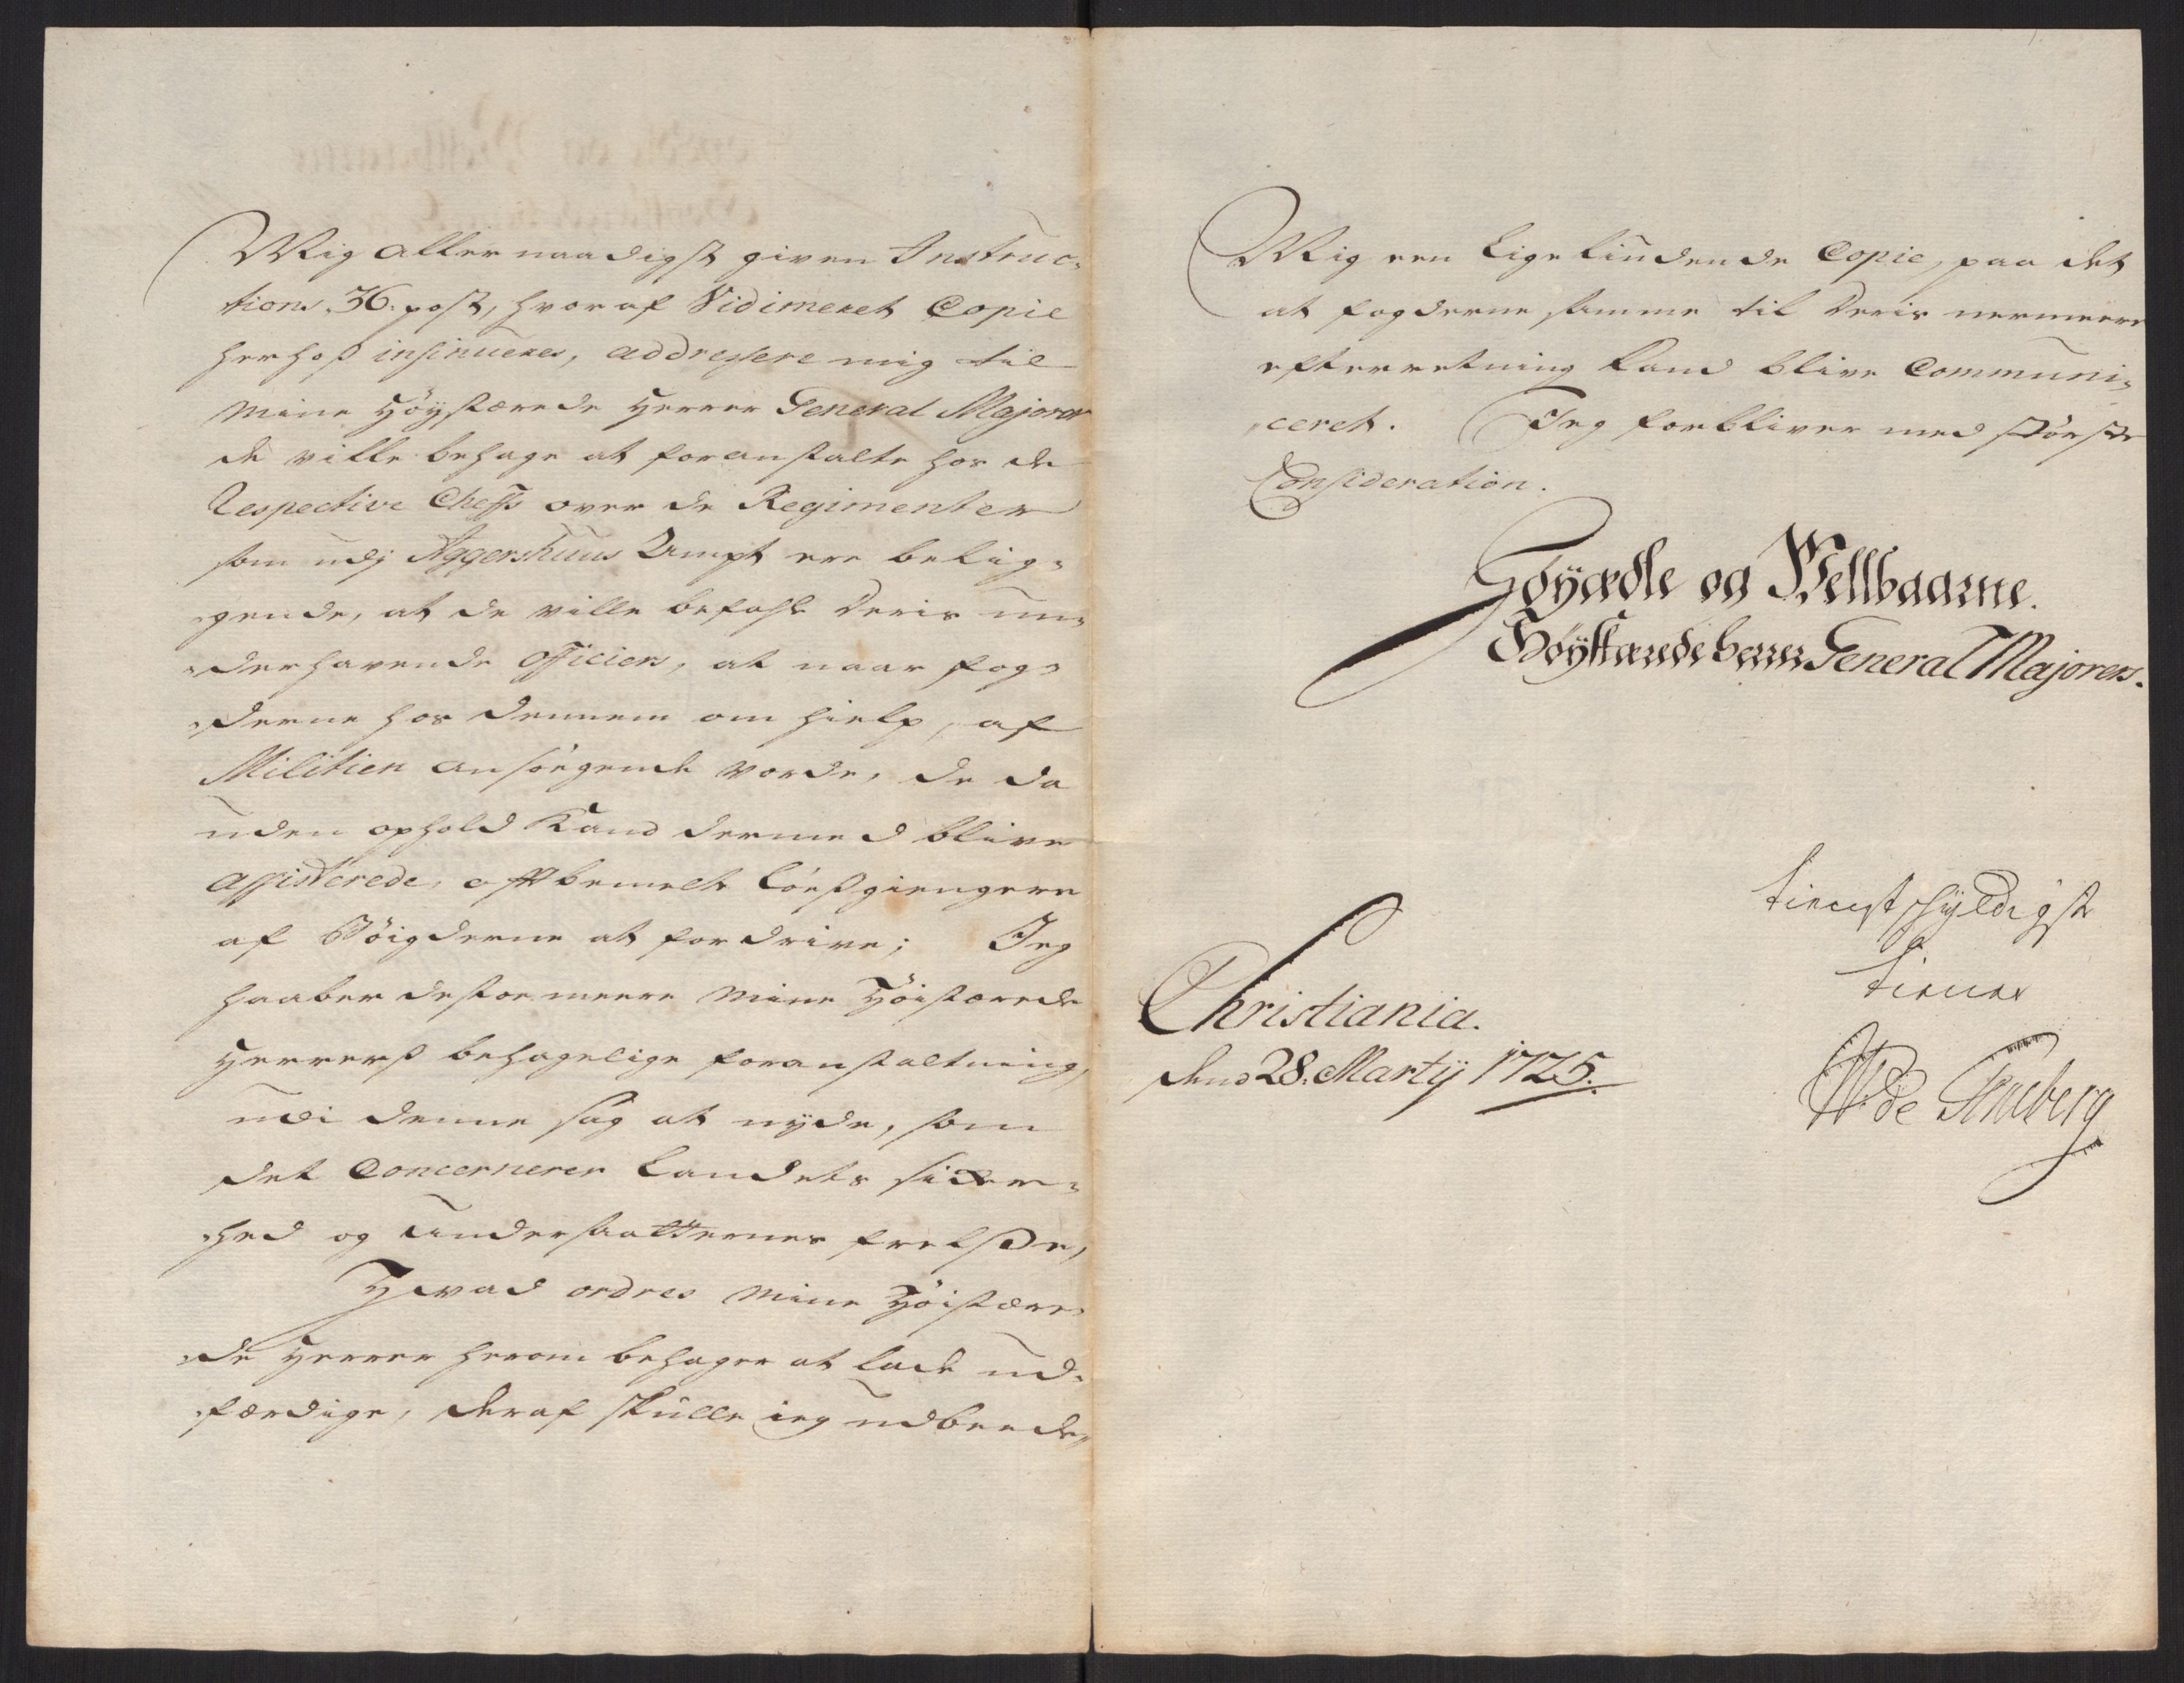 Mig allernaadigst given Instruc-
tions 36. post, hvoraf Vidimeret Copie
herhoß insinueres, addressere mig til
Mine Høystærede Herrer General Majorer
de ville behage at foranstalte hos de
Respective Cheffs over de Regimenter
som udj Aggershuus Ampt ere belig-
gende, at de ville befahle deris un-
derhavende Officiers, at naar fog-
derne hos dennem om hielp, af
Militien ansøgende vorde, de da
uden ophold kand dermed blive
assisterede, oftbemelte Løeßgiengere
af Bøigderne at fordrive; Jeg
haaber destoemeere Mine Høistærede
Herrerß behagelige foranstaltning,
udi denne sag at nyde, som
det Concernerer Landets sicker-
hed og Undersaatternes frelse,
Hvad ordres Mine Høistære-
de Herrer herom behager at lade ud-
færdige, deraf skulle ieg udbeede,
Mig een Ligelydende Copie, paa det
at fogderne samme til deris nermeere
efterretning kand blive Communi-
ceret. Jeg forbliver med største
Consideration.
Høyædle og Wellbaarne.
Høystærede herrer General Majorers.
tienstskyldigste
tiener
Christiania.
dend 28. Martij 1725.
W de Tonsberg